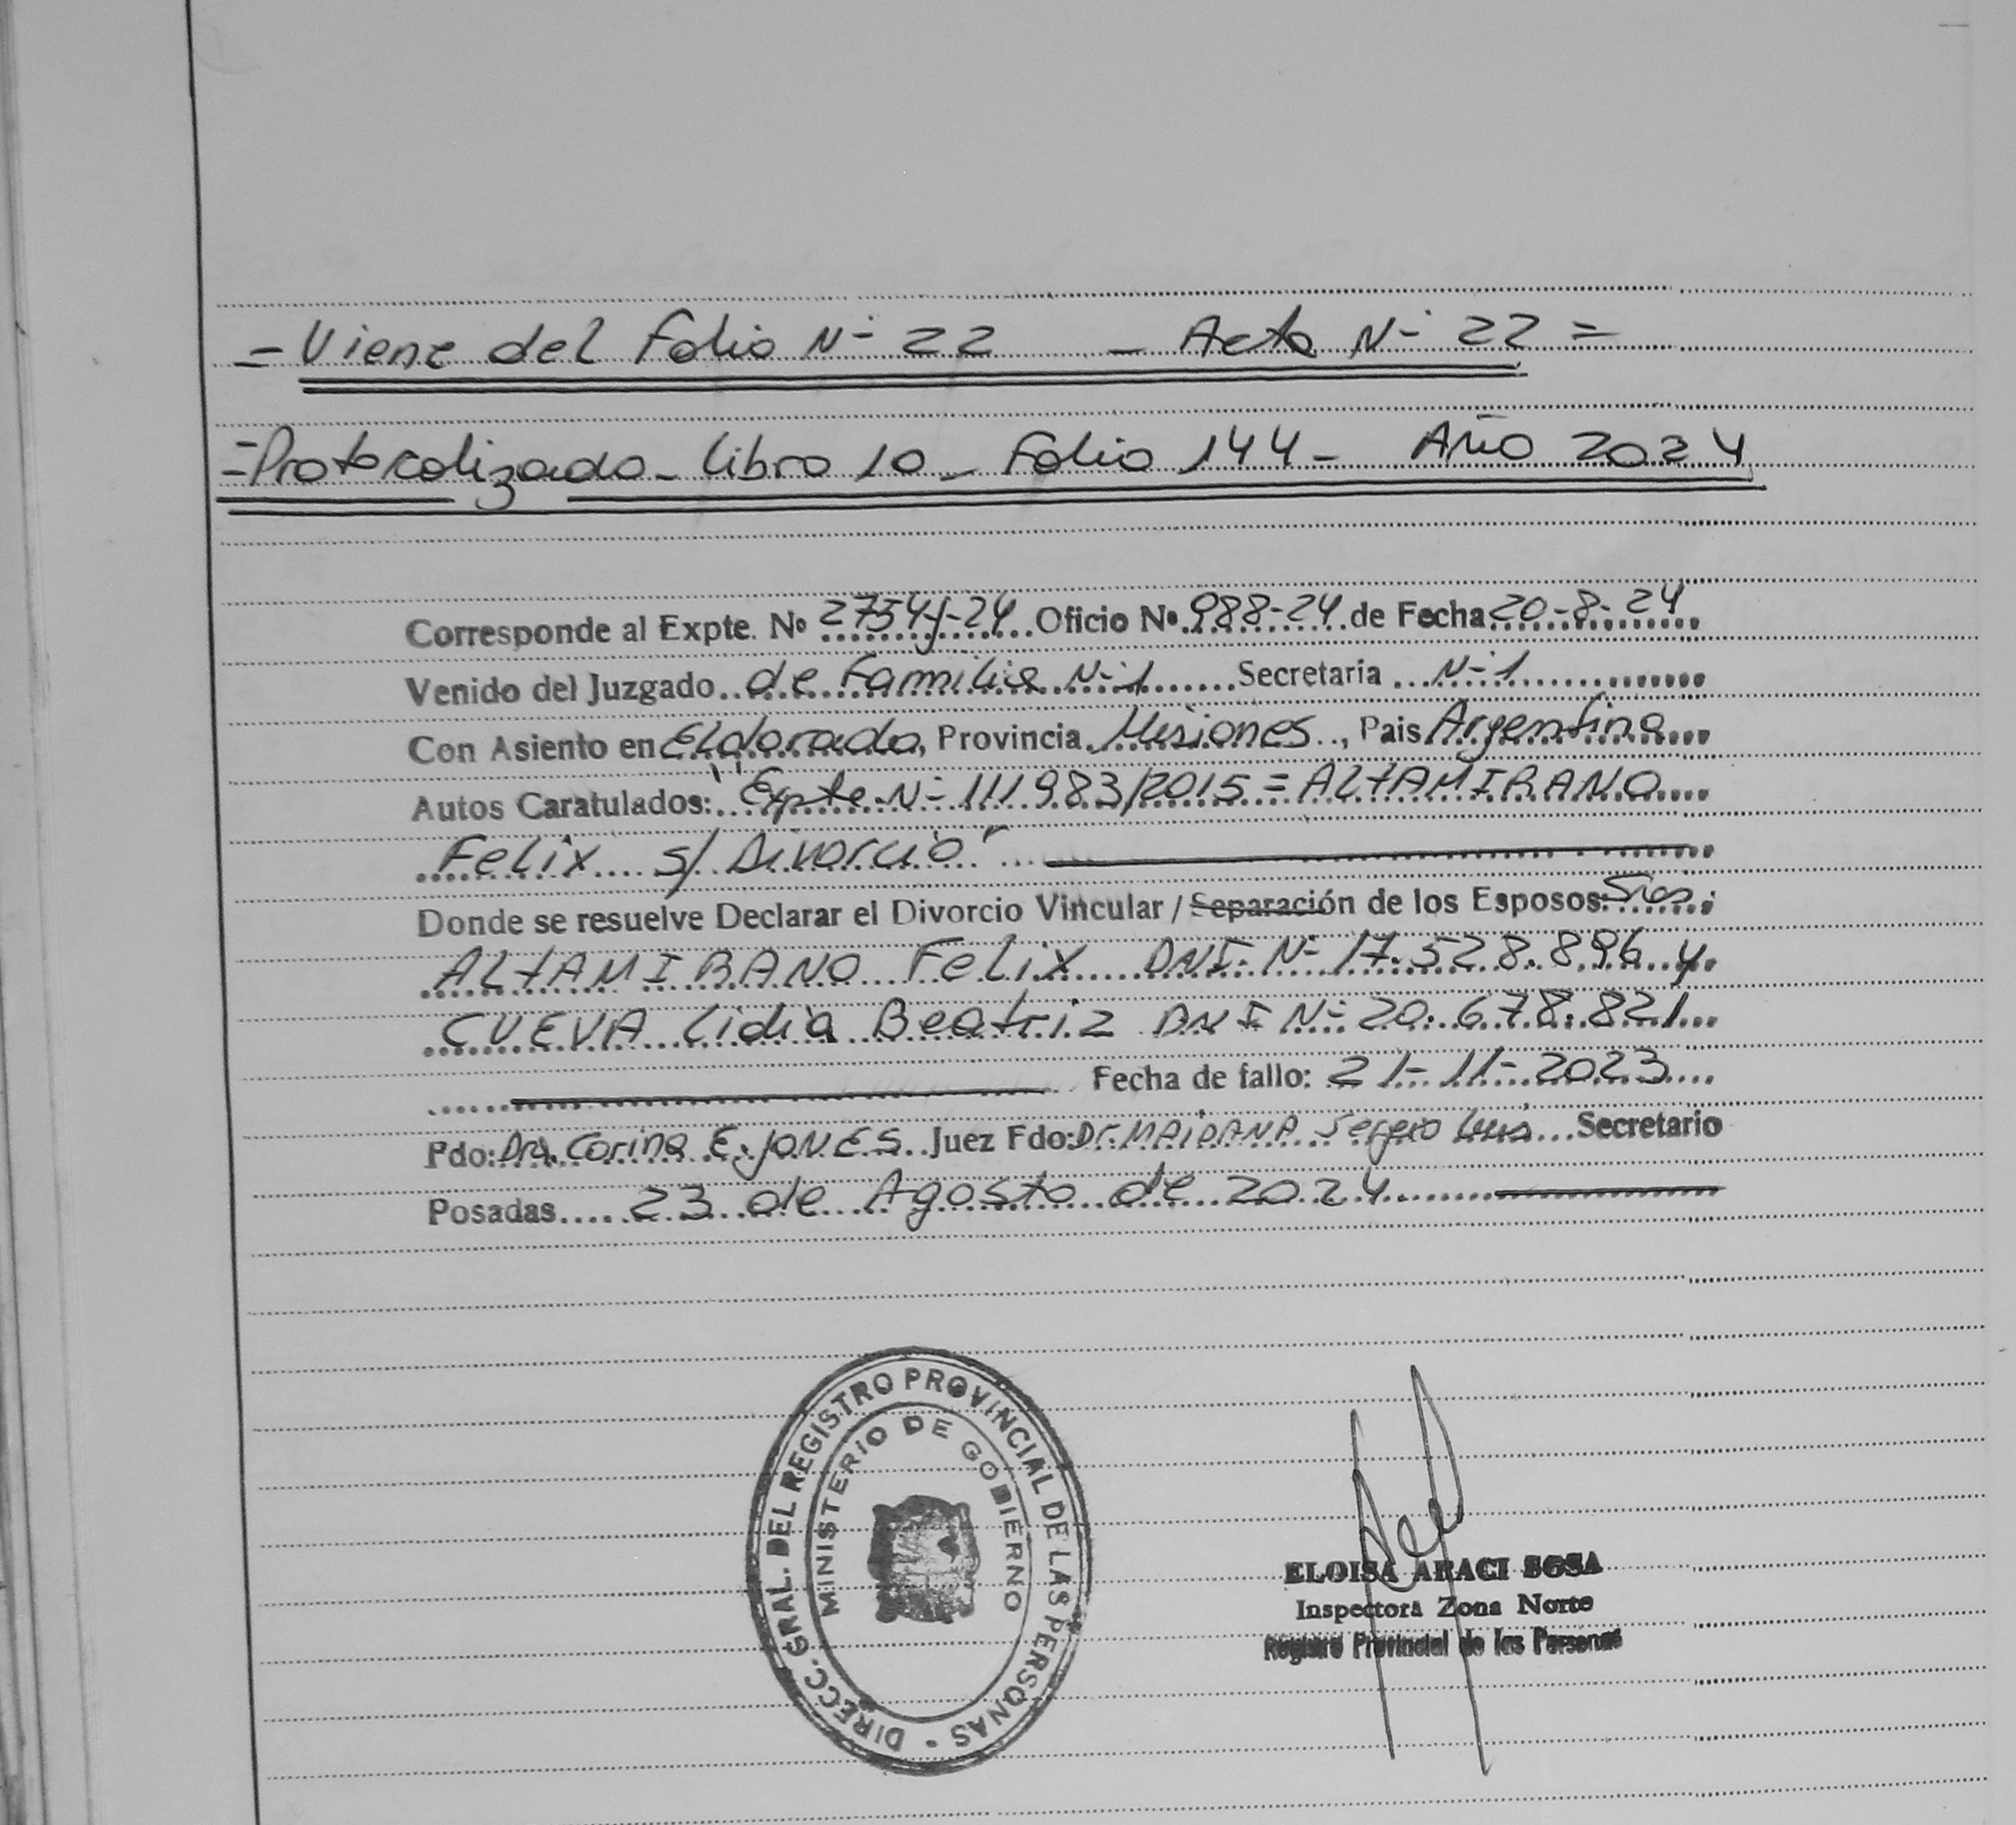 = Viene del Folio N- 22 - Acta N- 22 =
= Protocolizado - Libro 10 - Folio 144 - Año 2024
Corresponde al Expte. Nº 2754J-24 Oficio Nº 988-24 de Fecha 20-8-24
Venido del Juzgado de Familia N-1 Secretaria N-1
Con Asiento en Eldorado, Provincia Misiones, Pais Argentina
Autos Caratulados: "Expte N- 111983/2015 = ALTAMIRANO
Felix s/ Divorcio"
Donde se resuelve Declarar el Divorcio Vincular / Separación de los Esposos: Sres.
ALTAMIRANO Felix DNI N- 17.528.896 y
CUEVA Lidia Beatriz DNI N- 20.678.821
Fecha de fallo: 21-11-2023
Pdo: Dra. Corina E. JONES Juez Fdo: Dr. MAIDANA Sergio Luis Secretario
Posadas 23 de Agosto de 2024
DIRECC. GRAL. DEL REGISTRO PROVINCIAL DE LAS PERSONAS -
MINISTERIO DE GOBIERNO
ELOISA ARACI SOSA
Inspectora Zona Norte
Registro Provincial de las Personas